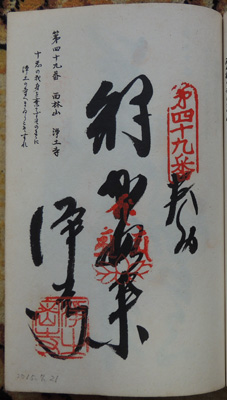 第四十九番
奉納
第四十九番 西林山 浄土寺
十悪の我身を棄てずそのままに
浄土の寺へまゐりこそすれ
釈迦如来
浄土寺
2015.7.21